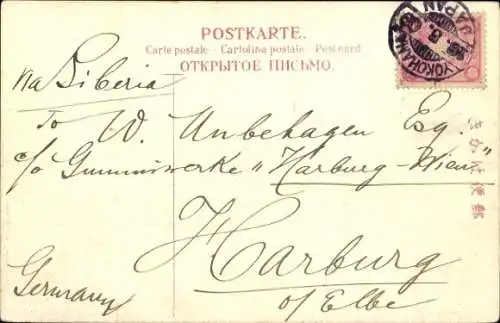 POSTKARTE.
Carte postale - Cartolina postale - Postcard
ОТКРЫТОЕ ПИСЬМО.
YOKOHAMA
JAPAN
via Siberia
To W. Unbehagen Esq.
c/o Gummiwerke "Harburg-Wien"
Harburg
o/ Elbe
Germany
きかは便郵